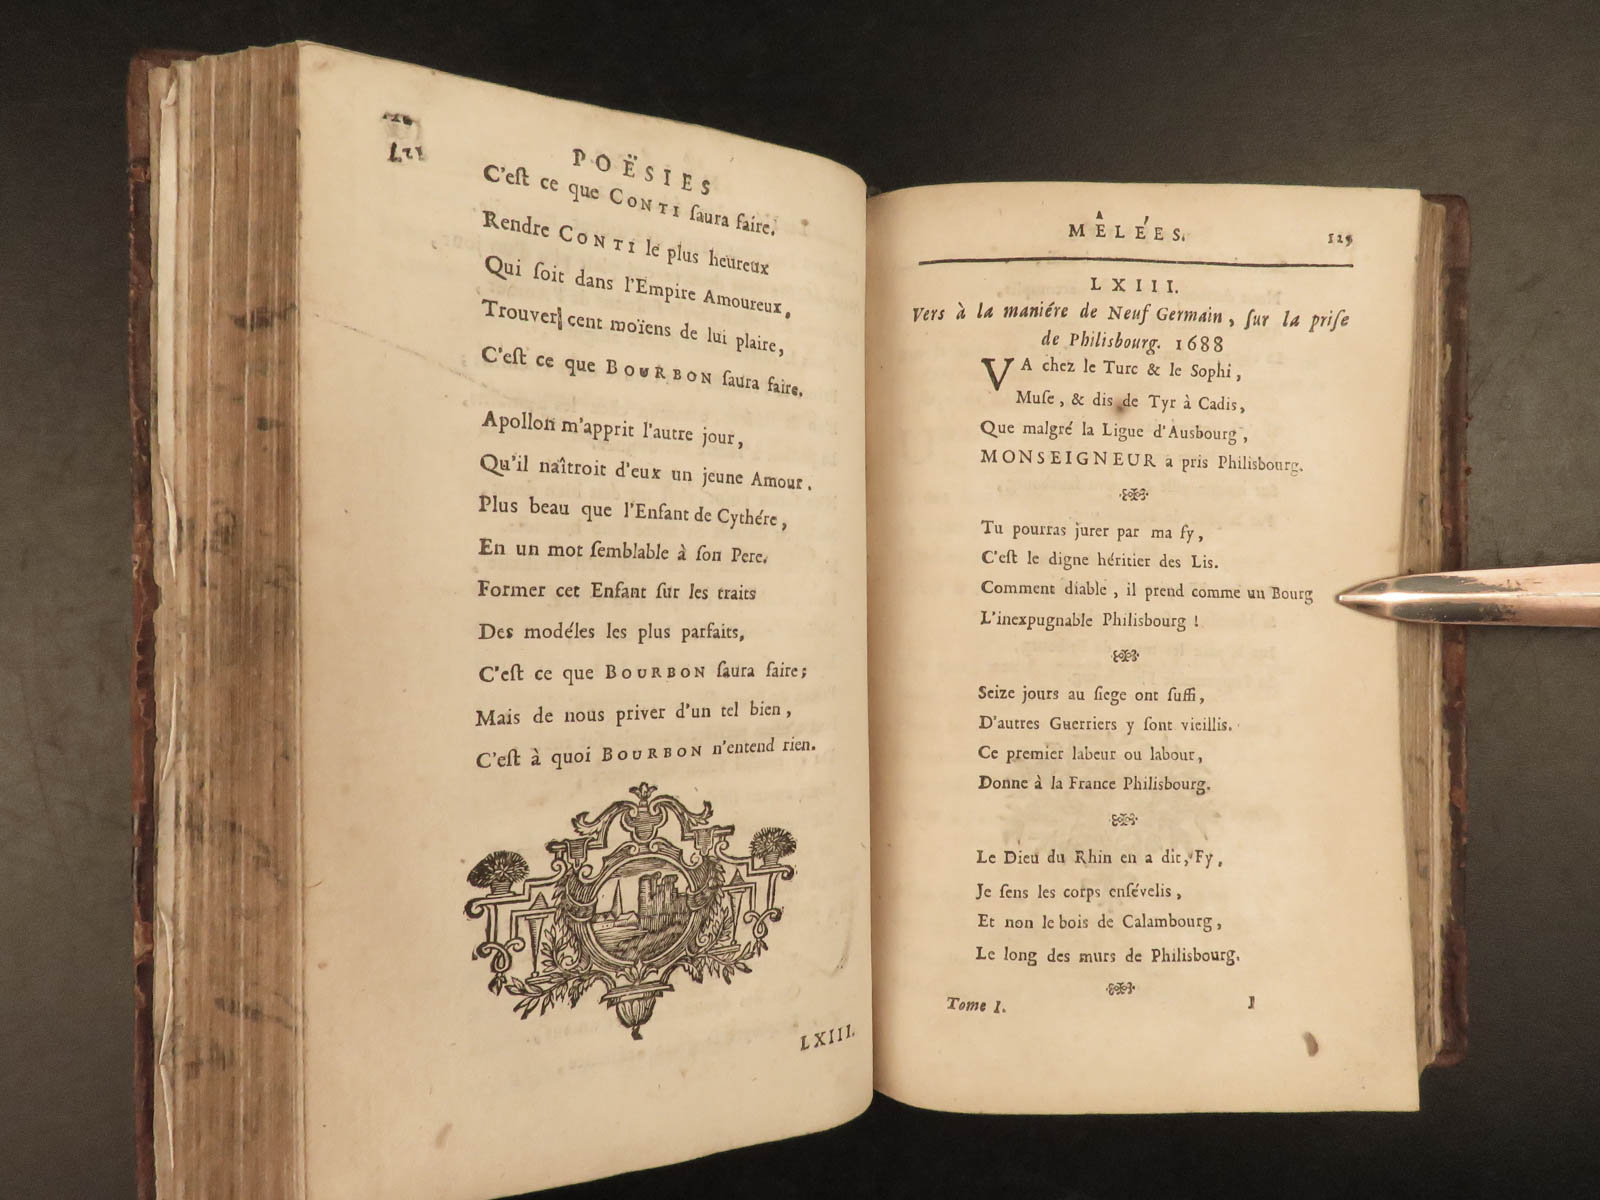 POËSIES
C'eſt ce que CONTI ſaura faire.
Rendre CONTI le plus heureux
Qui ſoit dans l'Empire Amoureux,
Trouver cent moïens de lui plaire,
C'eſt ce que BOURBON ſaura faire.
Apollon m'apprit l'autre jour,
Qu'il naîtroit d'eux un jeune Amour.
Plus beau que l'Enfant de Cythére,
En un mot ſemblable à ſon Pere.
Former cet Enfant ſur les traits
Des modéles les plus parfaits,
C'eſt ce que BOURBON ſaura faire;
Mais de nous priver d'un tel bien,
C'eſt à quoi BOURBON n'entend rien.
LXIII.
MÊLÉES.
LXIII.
Vers à la maniére de Neuf Germain, ſur la priſe
de Philisbourg. 1688
VA chez le Turc & le Sophi,
Muſe, & dis de Tyr à Cadis,
Que malgré la Ligue d'Ausbourg,
MONSEIGNEUR a pris Philisbourg.
Tu pourras jurer par ma fy,
C'eſt le digne héritier des Lis.
Comment diable, il prend comme un Bourg
L'inexpugnable Philisbourg!
Seize jours au ſiege ont ſuffi,
D'autres Guerriers y ſont vieillis.
Ce premier labeur ou labour,
Donne à la France Philisbourg.
Le Dieu du Rhin en a dit, Fy,
Je ſens les corps enſévelis,
Et non le bois de Calambourg,
Le long des murs de Philisbourg.
Tome I.